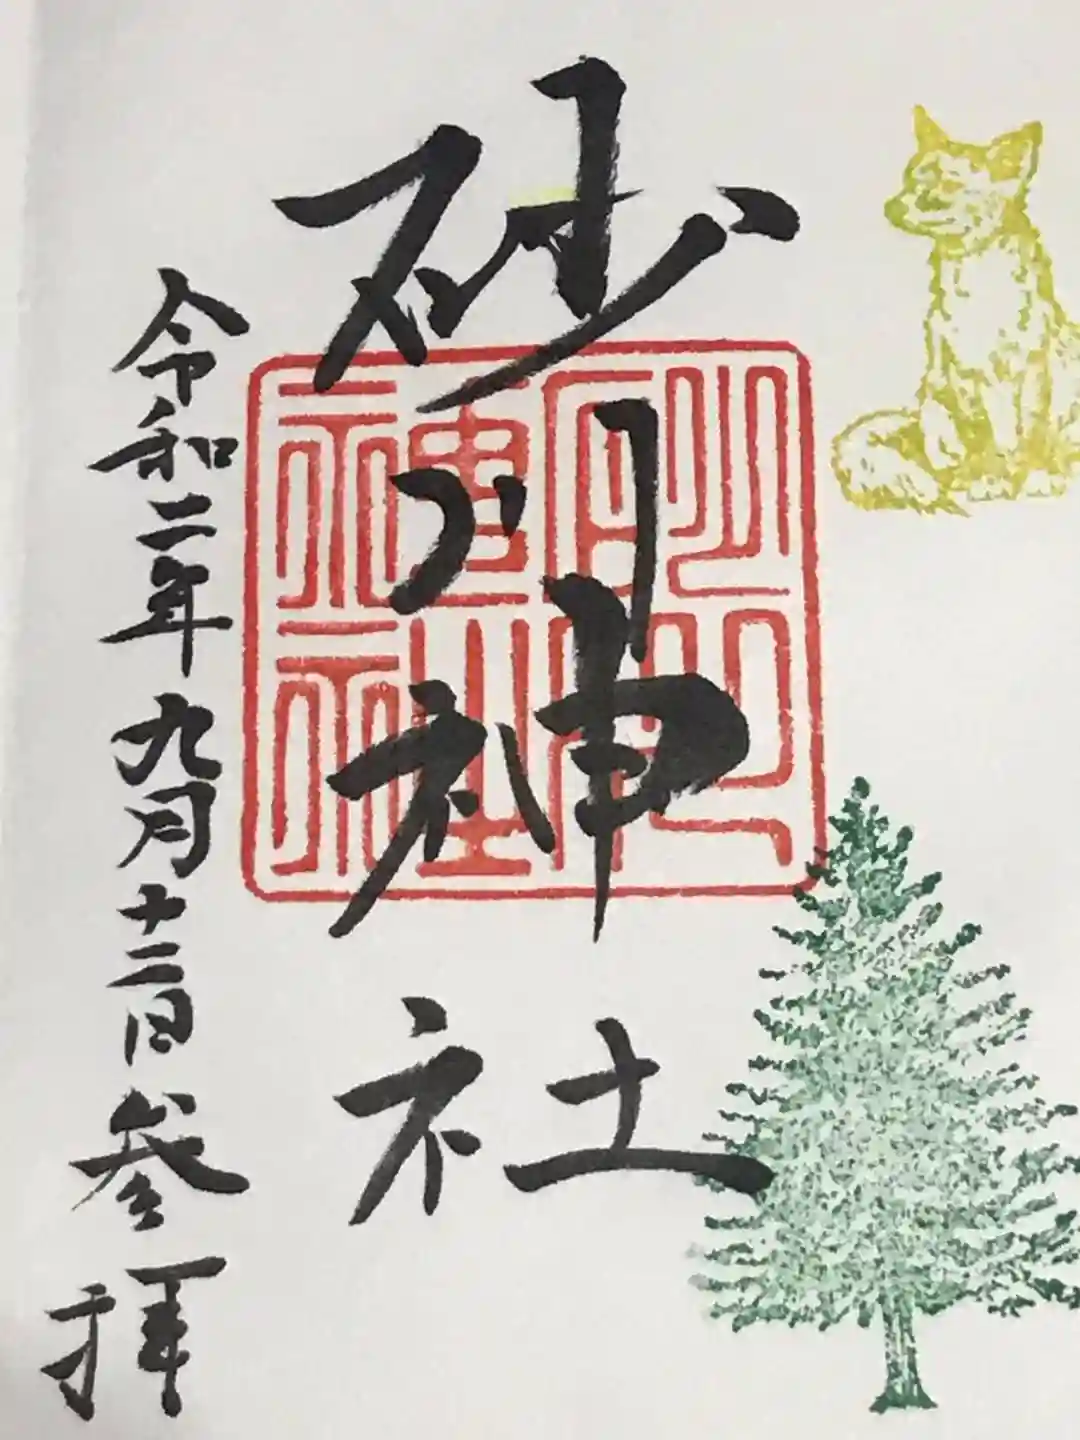 砂川神社
砂川神社
令和二年九月十二日参拝